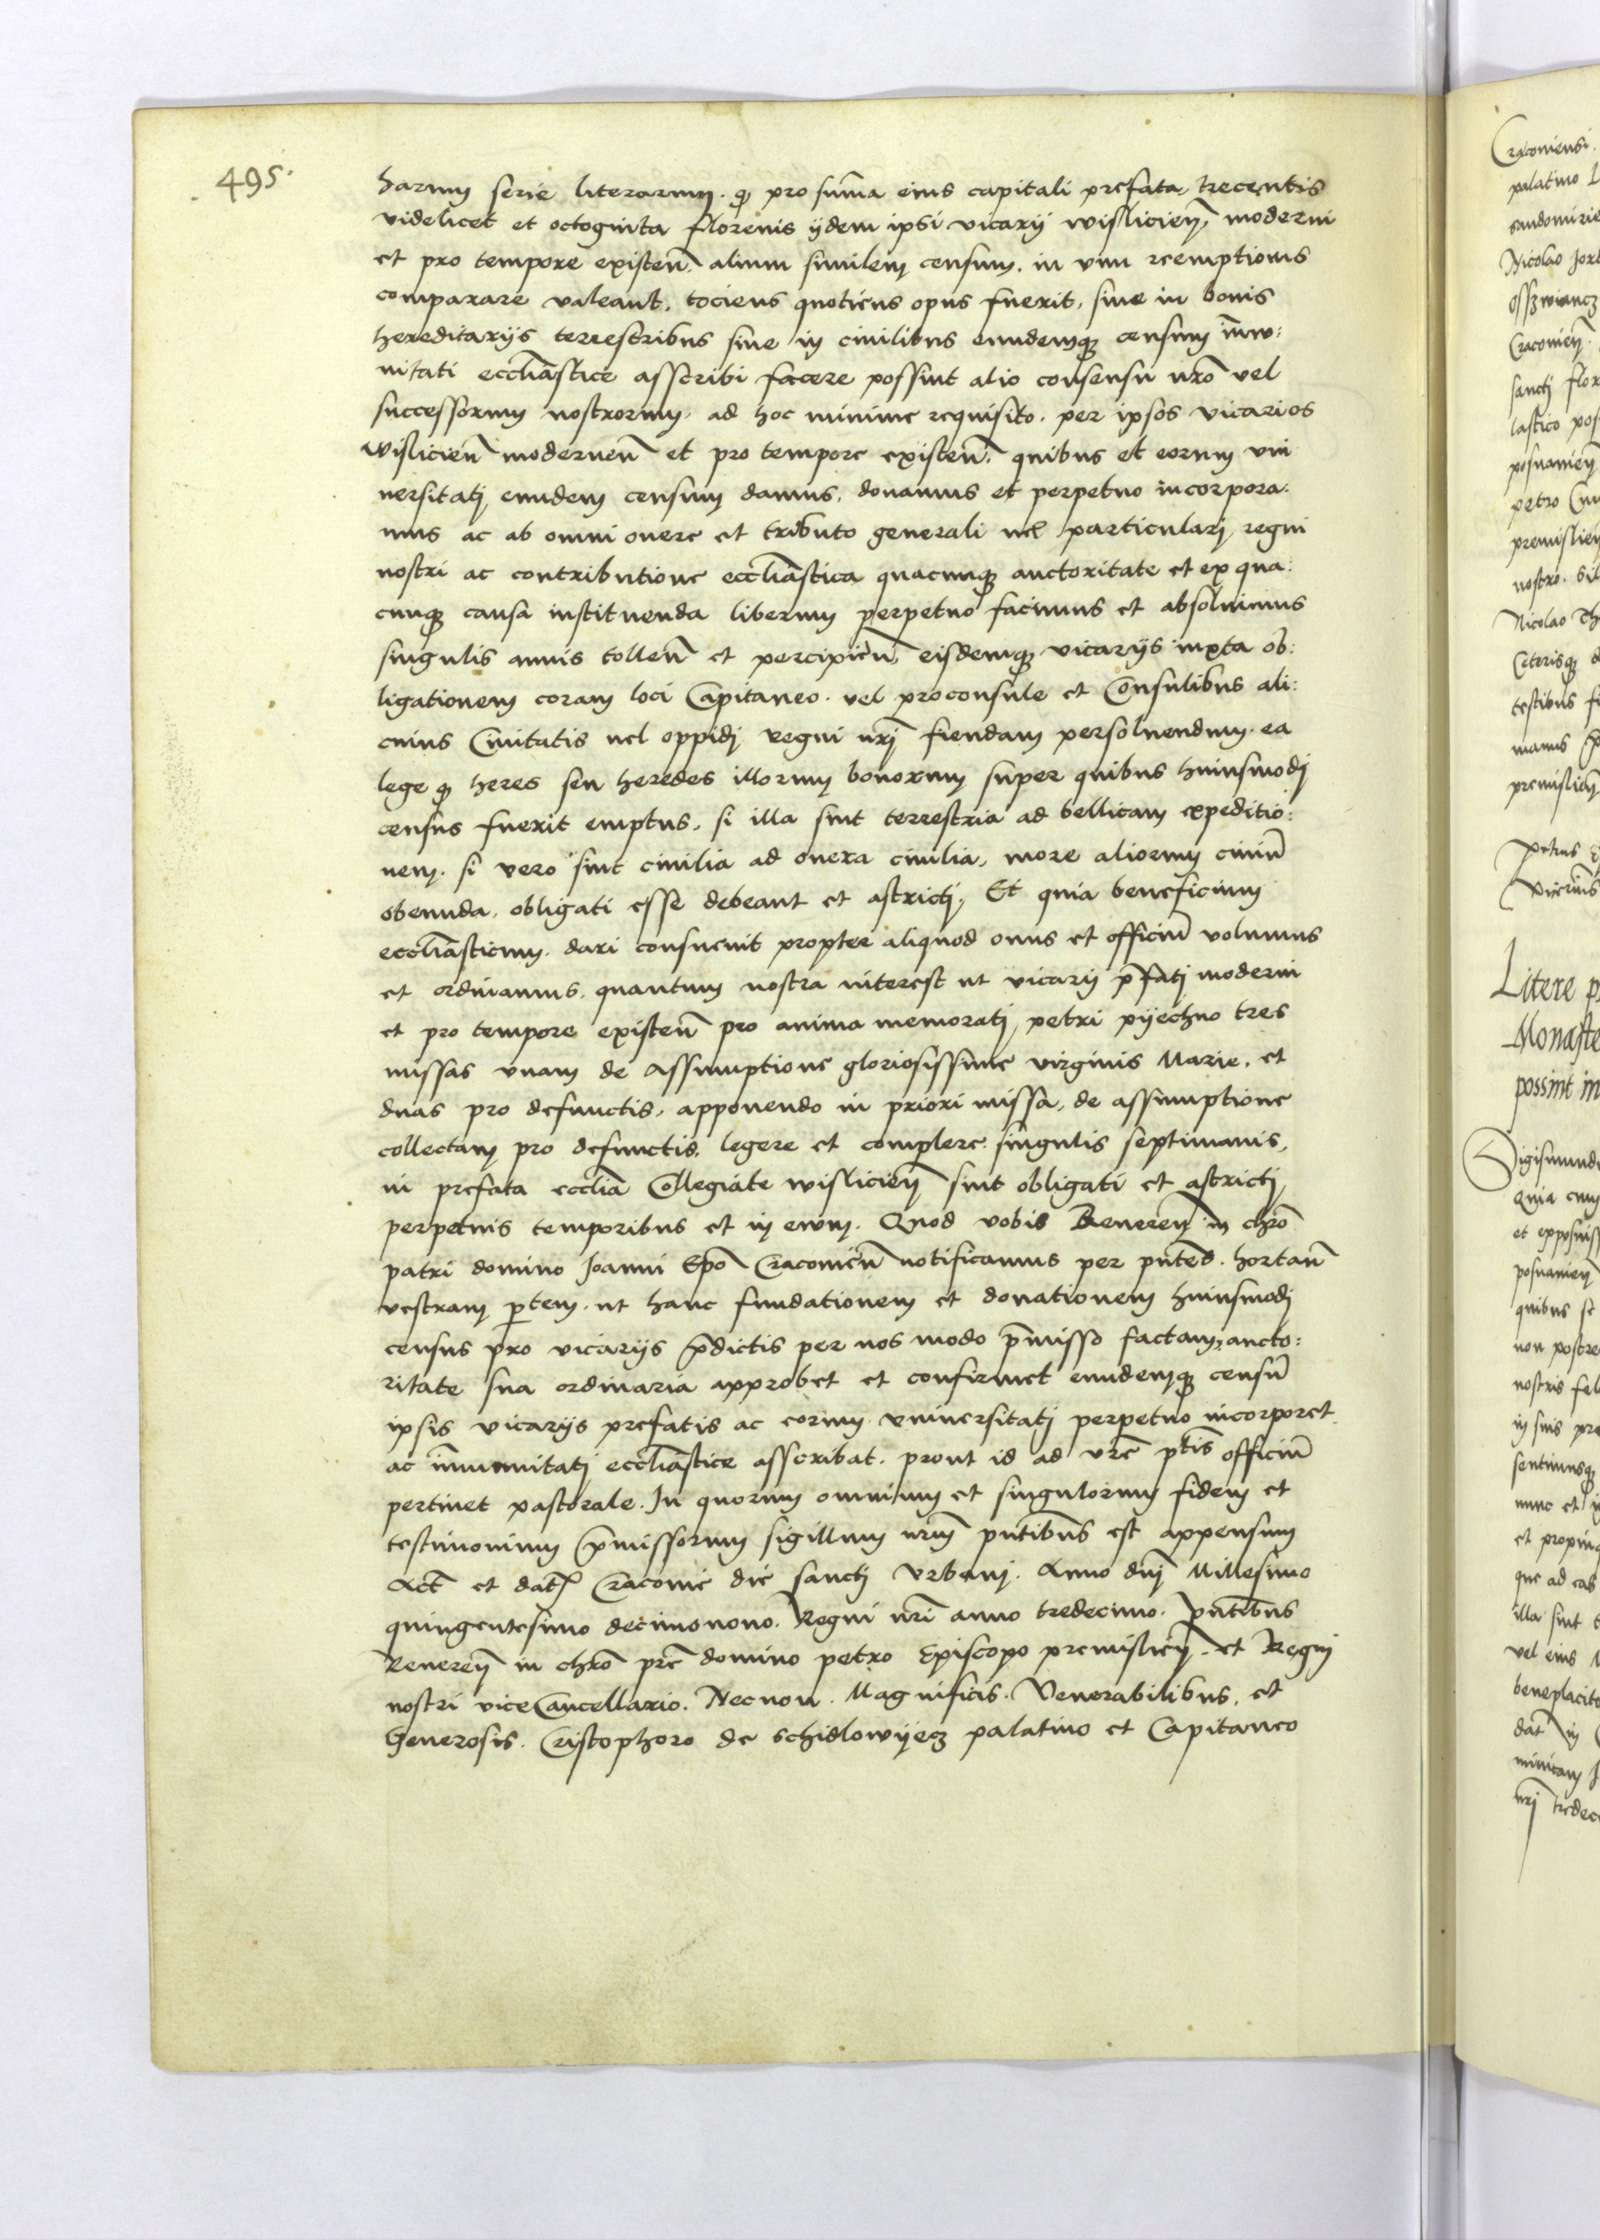 495.
harum serie literarum. qͦ pro sum̄a eius capitali prefata, trecentis
videlicet et octoginta florenis ijdem ipsi vicarij wislicien̄ moderni
et pro tempore existen̄. alium similem censum. in vim reemptionis
comparare valeant, tociens quotiens opus fuerit, siue in bonis
hereditarijs terrestribus siue in ciuilibus eundemqꝫ censum im̄u:
nitati eccl̄iastice asscribi facere possint alio consensu nr̄o vel
successorum nostrorum, ad hoc minime requisito. per ipsos vicarios
wislicien̄ modernen̄ et pro tempore existen̄. quibus et eorum vni
uersitatj eundem censum damus, donamus et perpetuo incorpora:
mus ac ab omni onere et tributo generali uel particularj regni
nostri ac contributione eccl̄iastica quacunqꝫ auctoritate et ex qua:
cunqꝫ causa instituenda liberum perpetuo facimus et absoluimus
singulis annis tollen̄ et percipien̄ eisdemqꝫ vicarijs iuxta ob:
ligationem coram loci Capitaneo. vel proconsule et Consulibus ali:
cuius Ciuitatis uel oppidj regni nr̄j fiendam persoluendum. ea
lege qͦ heres seu heredes illorum bonorum super quibus huiusmodj
census fuerit emptus, si illa sint terrestria ad bellicam expeditio:
nem. si vero sint ciuilia ad onera ciuilia, more aliorum ciuiu̅
obeunda, obligati esse debeant et astrictj. Et quia beneficium
eccl̄iasticum. dari consueuit propter aliquod onus et officiu̅ volumus
et ordinamus, quantum nostra interest ut vicarij p̄fatj moderni
et pro tempore existen̄ pro anima memoratj petri pijechno tres
missas vnam de Assumptione gloriosissime virginis Marie, et
duas pro defunctis, apponendo in priori missa, de assumptione
collectam pro defunctis, legere et complere singulis septimanis,
in prefata eccl̄ia Collegiate wislicien̄ sint obligati et astrictj
perpetuis temporibus et in euum. Quod vobis Reueren̄ in chr̄o
patri domino Joanni Ep̄o Cracouien̄ notificamus per pn̄tes. hortan̄
vestram p̄tem. ut hanc fundationem et donationem huiusmodj
census pro vicarijs p̄dictis per nos modo p̄misso factam, aucto:
ritate sua ordinaria approbet et confirmet eundemqꝫ censu̅
ipsis vicarijs prefatis ac eorum vniuersitatj perpetuo incorporet
ac im̄munitatj eccl̄iastice asscribat. prout id ad vr̄e p̄tis officiu̅
pertinet pastorale. In quorum omnium et singulorum fidem et
testimonium p̄missorum sigillum nr̄um pn̄tibus est appensum
Act̄ et dat̄ Cracouie die sanctj Vrbanj. Anno dn̄j Millesimo
quingentesimo decimonono. Regni nr̄i anno tredecimo. pn̄tibus
Reueren̄ in chr̄o pr̄e domino petro Episcopo premislien̄. et Regnj
nostri viceCancellario. Necnon. Magnificis. Venerabilibus, et
Generosis. Cristophoro de Schidlowijecz palatino et Capitaneo
Cracouiensi.
palatino
Nicolao
Cracouien̄
sanctj
posnanien̄
petro
nostro.
Nicolao
Ceterisqꝫ
testibus
Litere
Monaste
possint in
Quia cum
posnanien̄
quibus se
nostris
in suis
nunc et
et
que ad eas
illa sint
vel eius
beneplacito
dat̄ in
nr̄j tredec